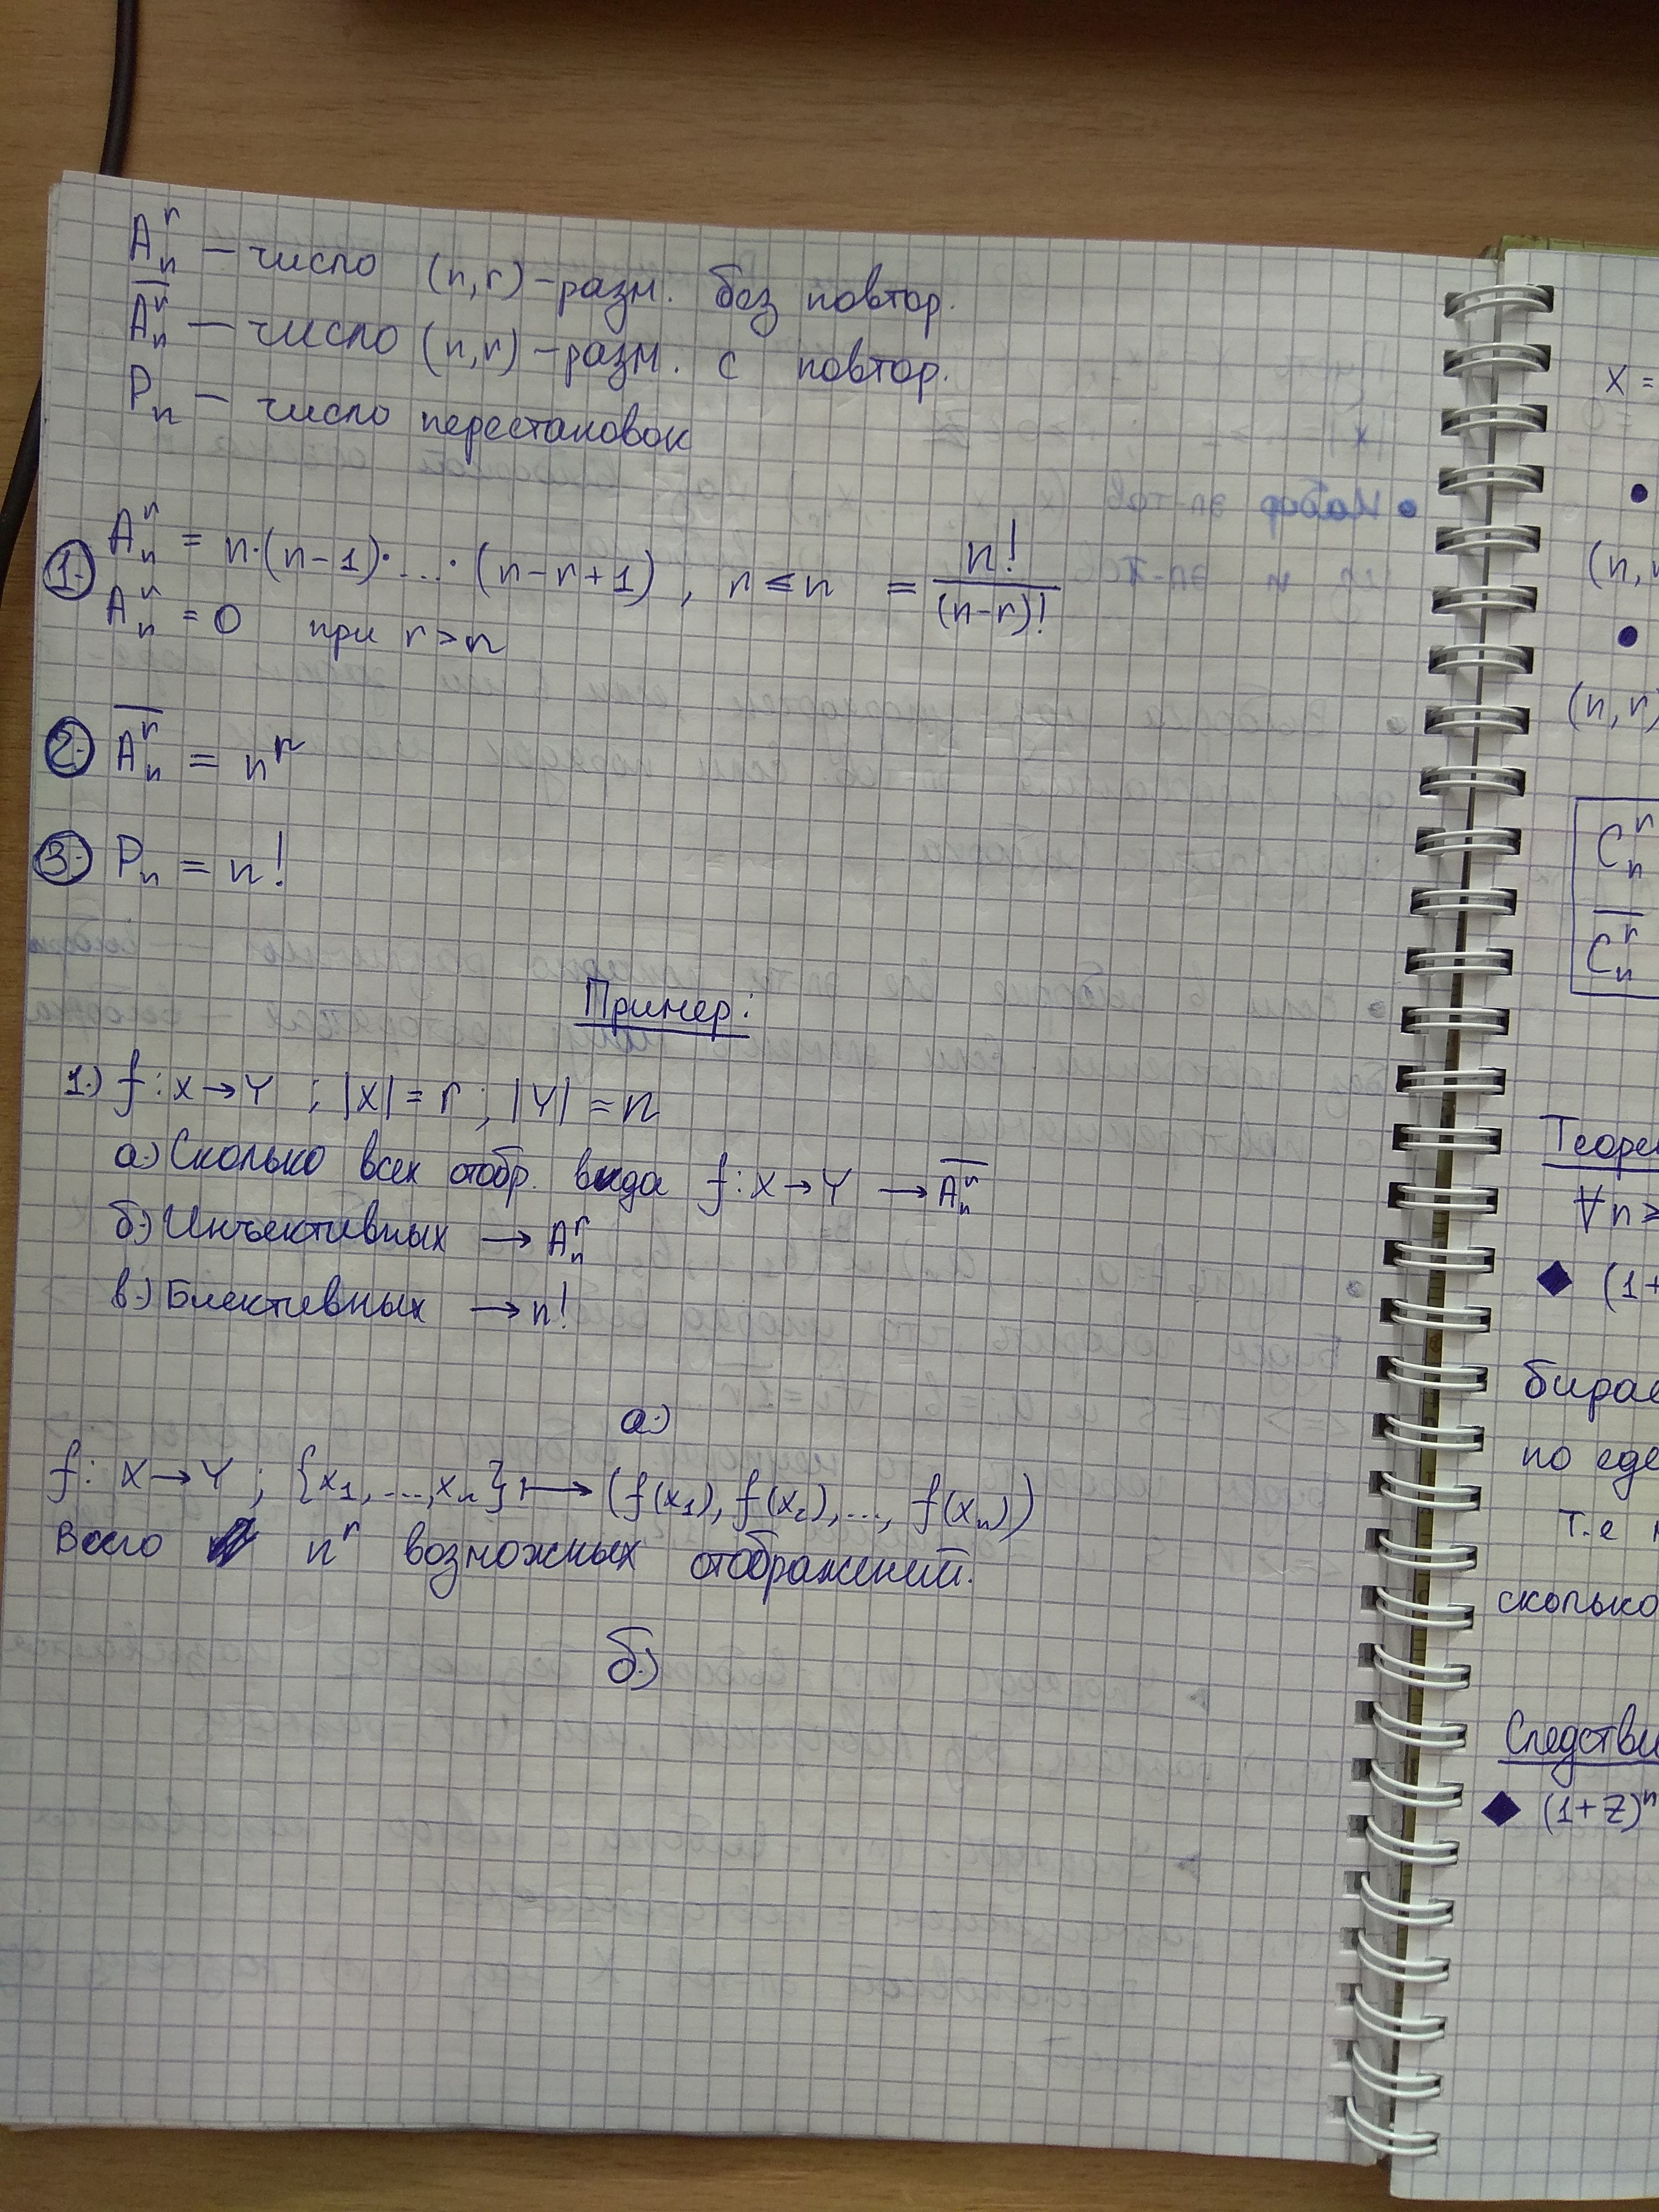 Aₙʳ — число (n,r)-разм. без повтор.
A̅ₙʳ — число (n,r)-разм. с повтор.
Pₙ — число перестановок
1. Aₙʳ = n·(n-1)·...·(n-r+1), r ≤ n = n!/(n-r)!
Aₙʳ = 0 при r > n
2. A̅ₙʳ = nʳ
3. Pₙ = n!
Пример:
1.) f: X → Y ; |X| = r ; |Y| = n
а.) Сколько всех отобр. вида f: X → Y → A̅ₙʳ
б.) Инъективных → Aₙʳ
в.) Биективных → n!
а.)
f: X → Y ; {x₁, ..., xₙ} ↦ (f(x₁), f(x₂), ..., f(xₙ))
Всего nʳ возможных отображений.
б.)
x =
(n,
(n,r)
Cₙʳ
C̅ₙʳ
∀n ≥
(1+
по
т.е
сколько
(1+z)ⁿ